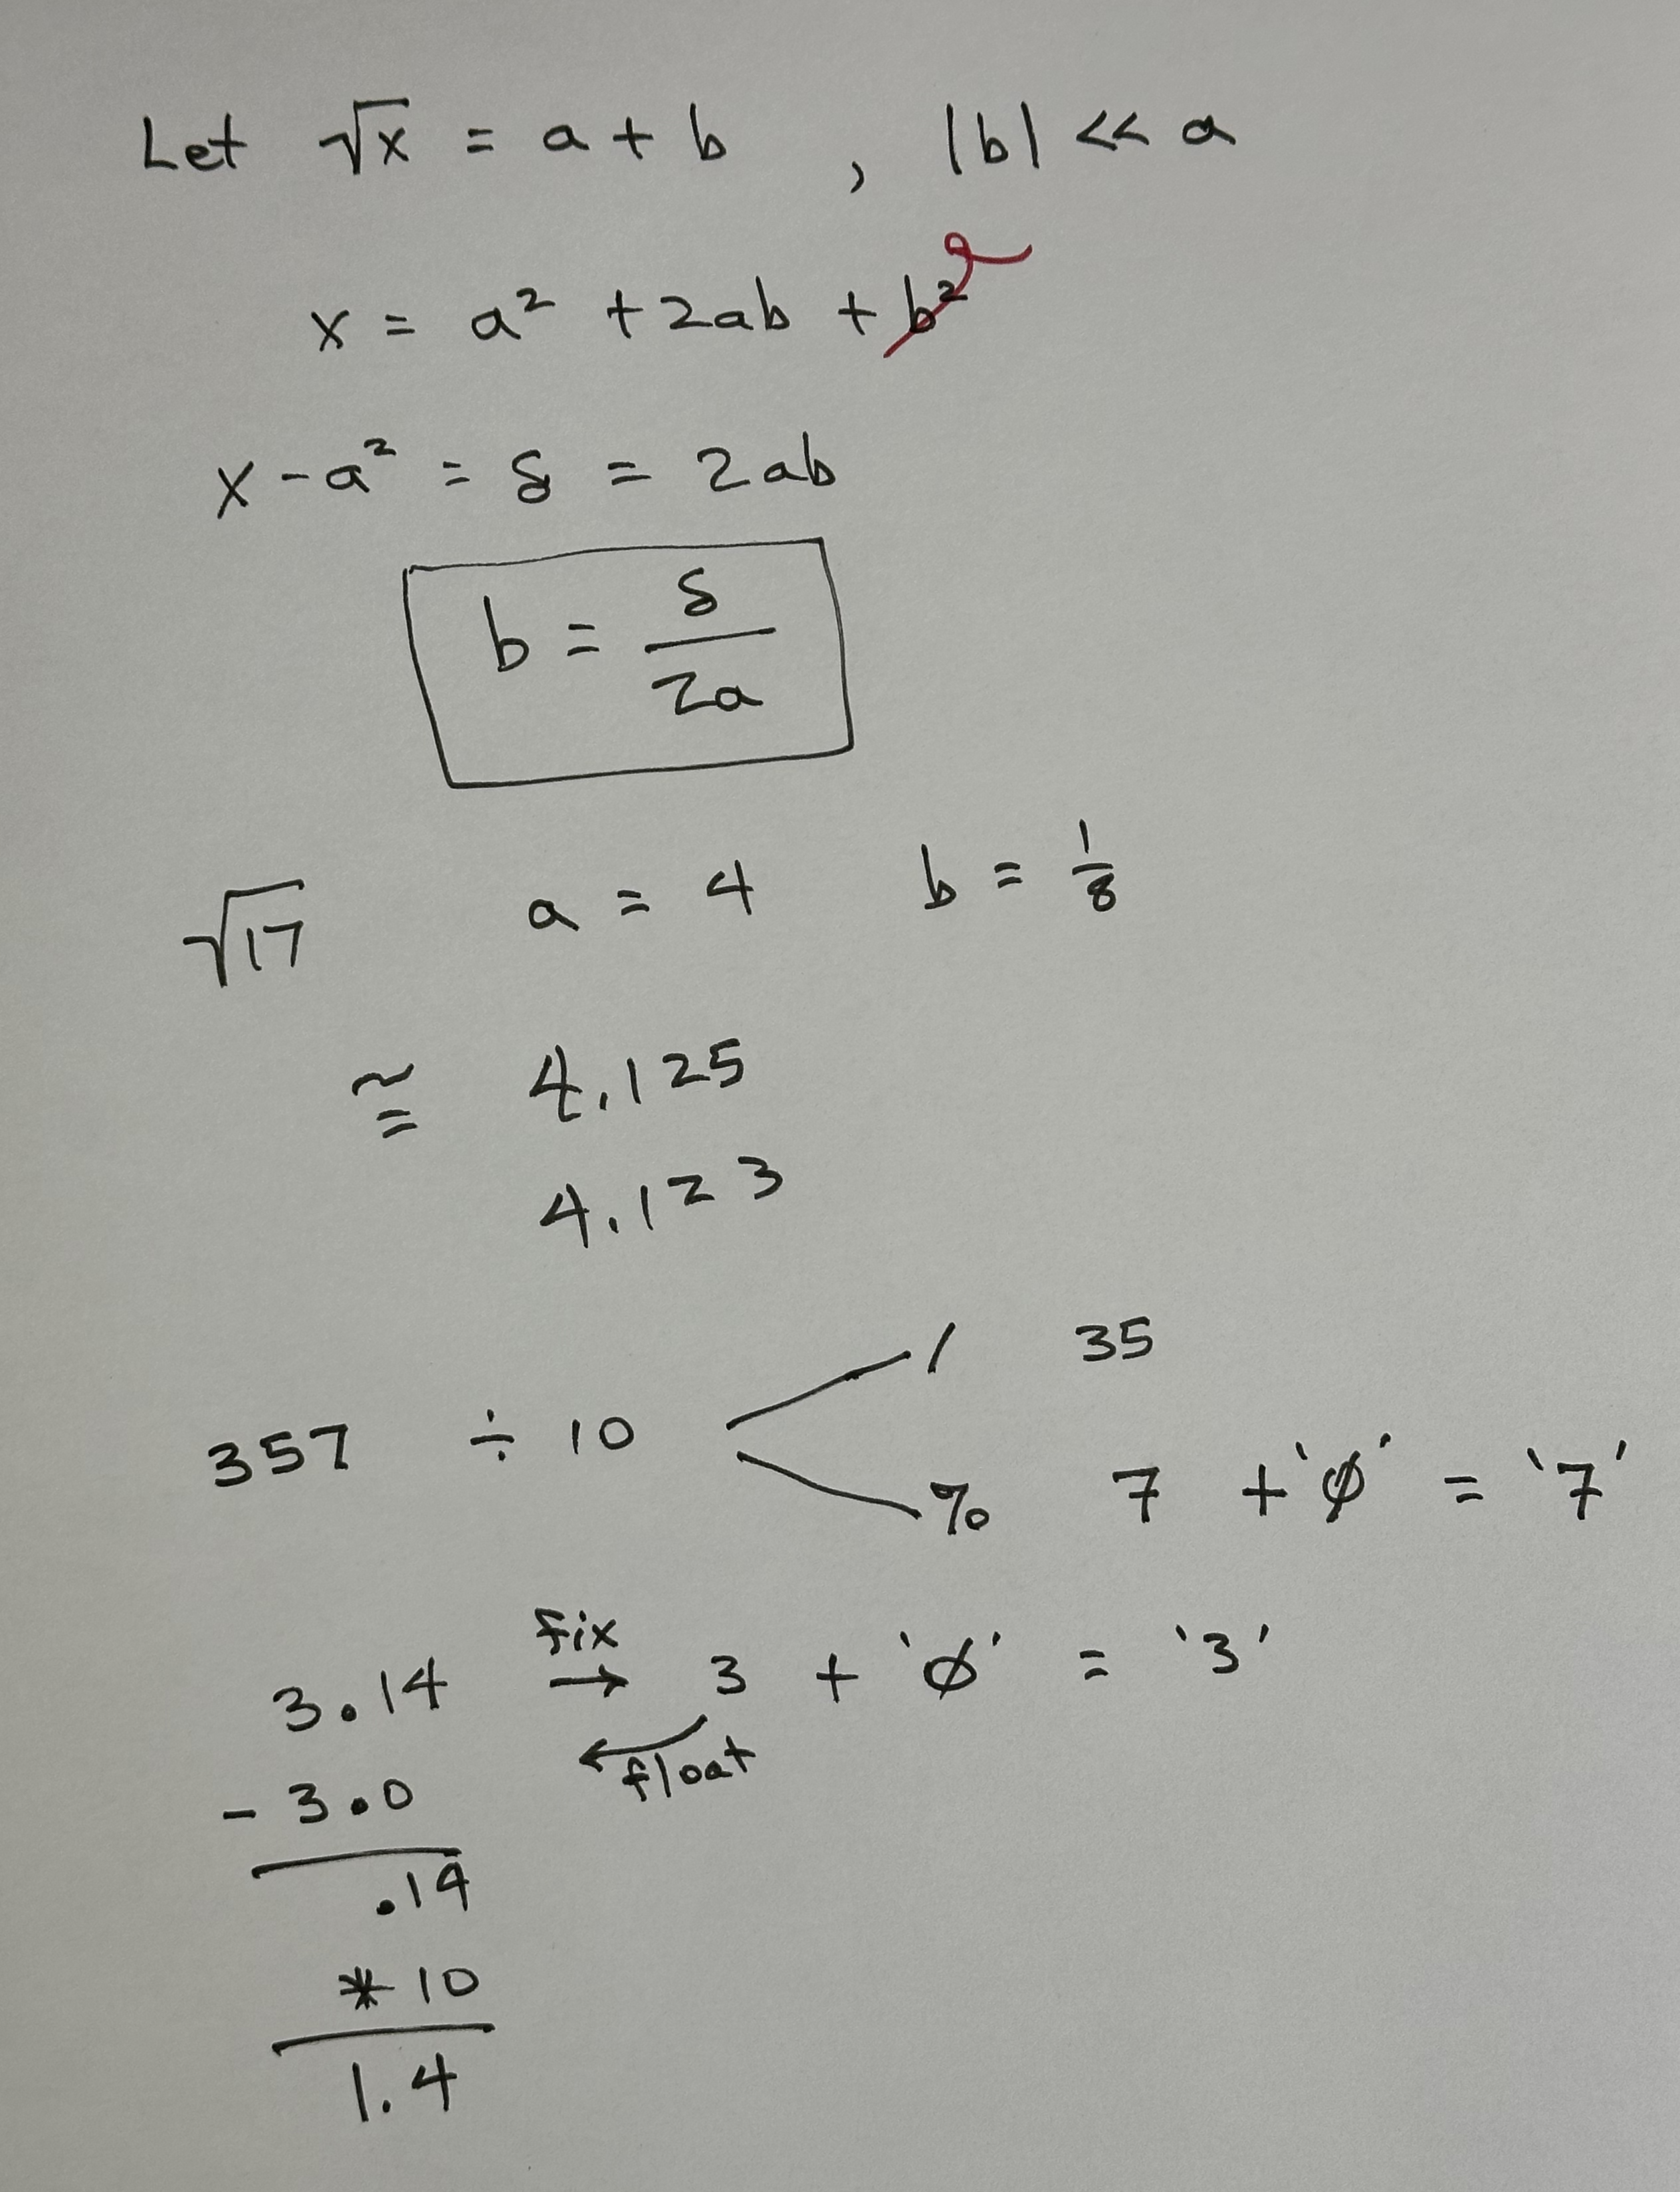 Let √x = a + b , |b| << a
x = a² + 2ab + b²
x - a² = δ = 2ab
b = δ/2a
√17 a = 4 b = 1/8
≅ 4.125
4.123
/ 35
357 ÷ 10
% 7 + 'Ø' = '7'
fix
3.14 → 3 + 'Ø' = '3'
← float
- 3.0
.14
* 10
1.4